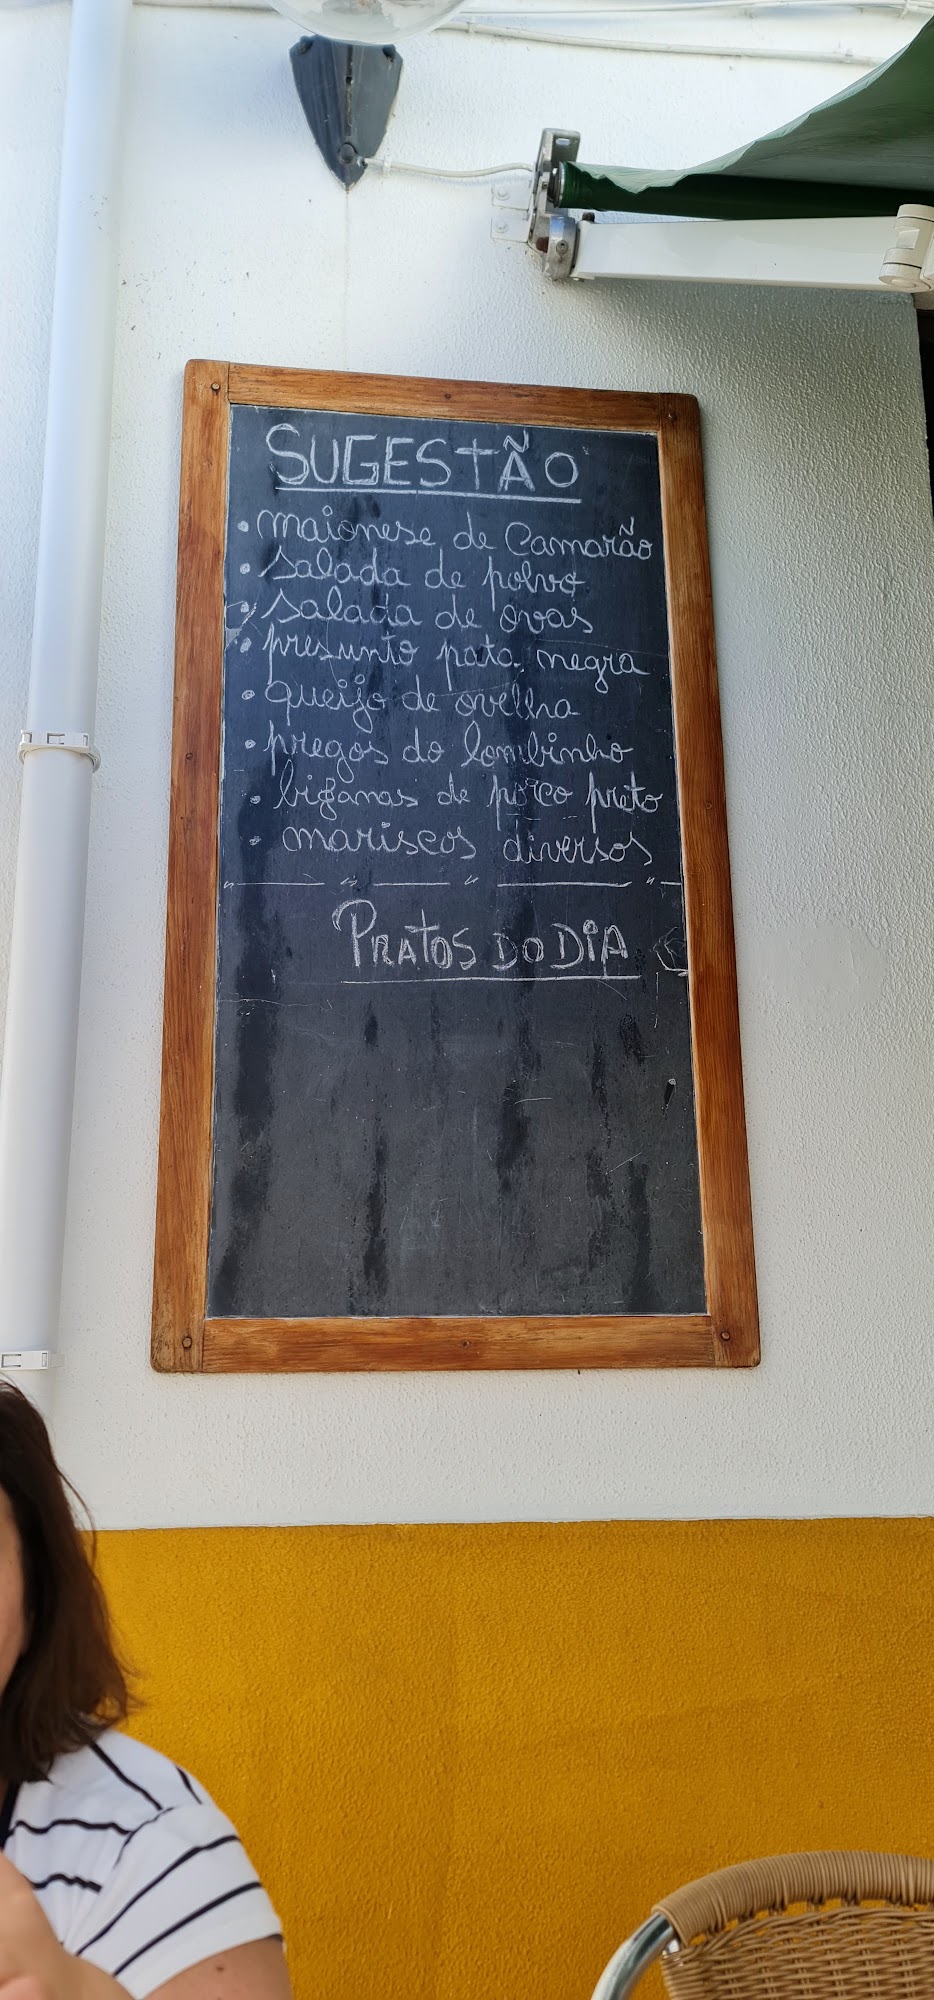 SUGESTÃO
• maionese de Camarão
• salada de polvo
• salada de ovas
• presunto pata negra
• queijo de ovelha
• pregos do lombinho
• bifanas de porco preto
• mariscos diversos
PRATOS DO DIA